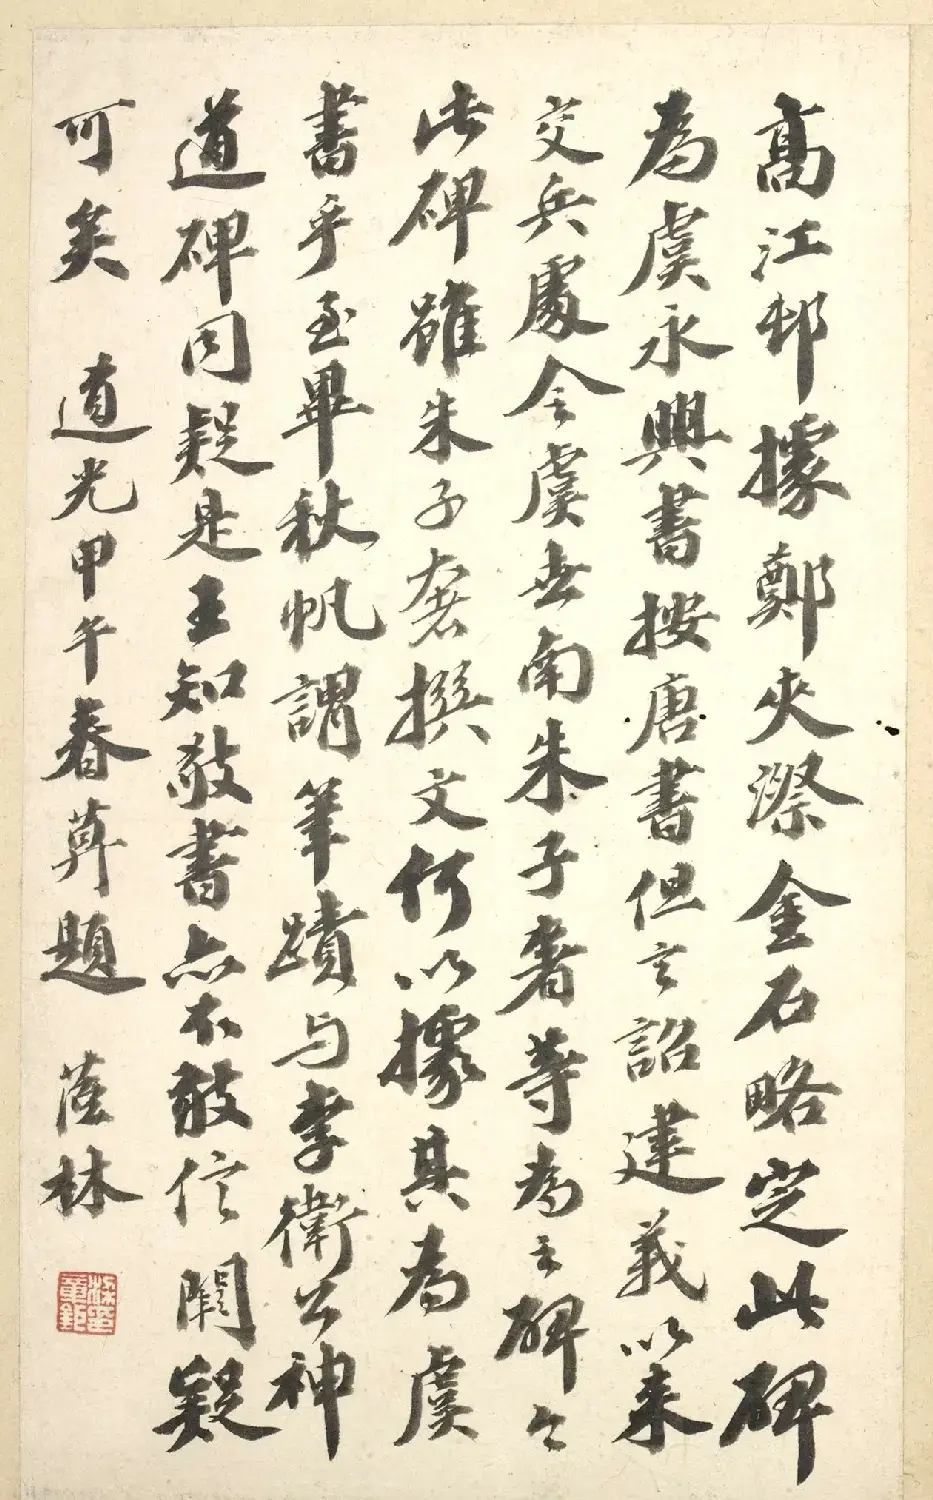 高江邨據鄭夾漈金石略定此碑
為虞永興書按唐書但言詔建義以來
交兵處令虞世南朱子奢等為之碑今
此碑雖朱子奢撰文何以據其為虞
書乎至畢秋帆謂筆蹟与李衛公神
道碑同疑是王知敬書亦不敢信闕疑
可矣 道光甲午春莫題 茝林
梁印章鉅